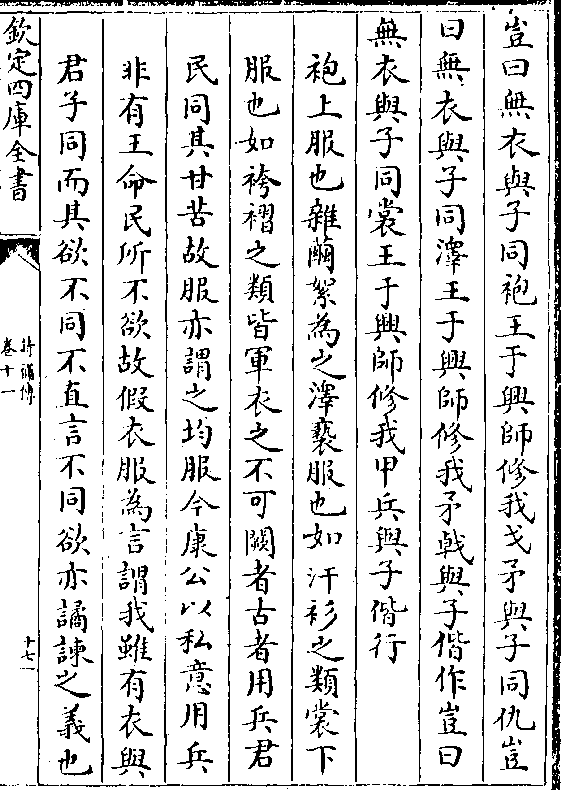 豈曰無衣與子同袍王于興師修我戈矛與子同仇豈
曰無衣與子同澤王于興師修我矛戟與子偕作豈曰
無衣與子同裳王于興師修我甲兵與子偕行
袍上服也雜繭絮為之澤褻服也如汗衫之類裳下
服也如袴褶之類皆軍衣之不可闕者古者用兵君
民同其甘苦故服亦謂之均服今康公以私意用兵
非有王命民所不欲故假衣服為言謂我雖有衣與
君子同而其欲不同不直言不同欲亦譎諫之義也
欽定四庫全書
詩演傳
卷十一
十七